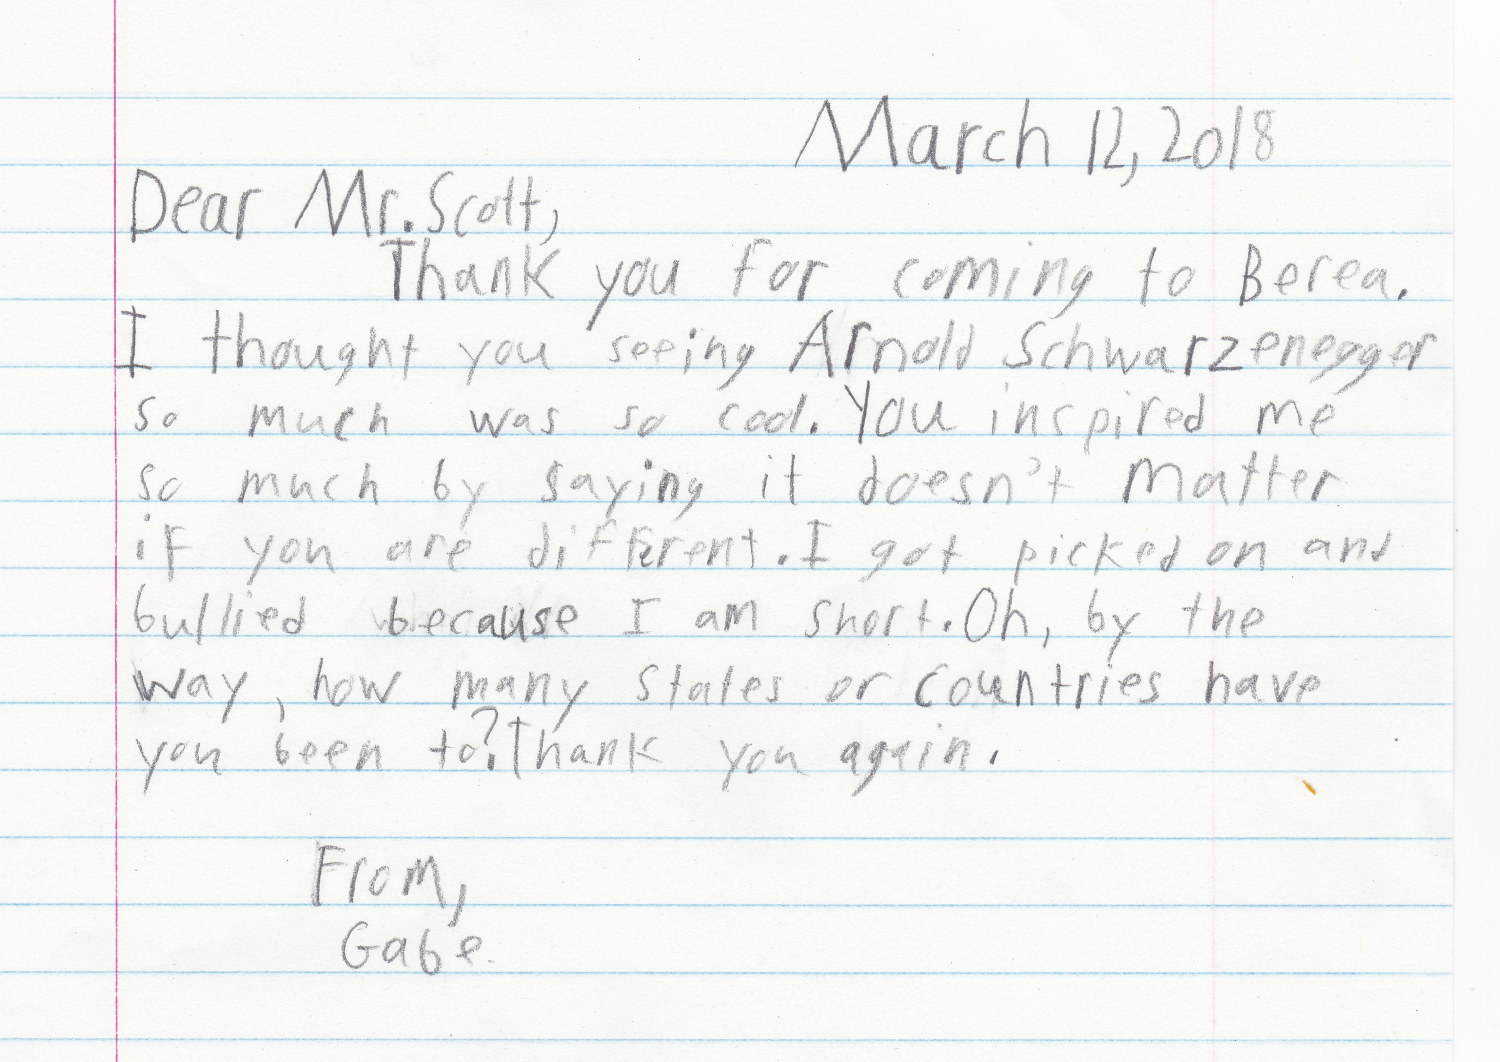 March 12, 2018
Dear Mr. Scott,
Thank you for coming to Berea.
I thought you seeing Arnold Schwarzenegger
so much was so cool. You inspired me
so much by saying it doesn't matter
if you are different. I got picked on and
bullied because I am short. Oh, by the
way, how many states or countries have
you been to? Thank you again.
From,
Gabe